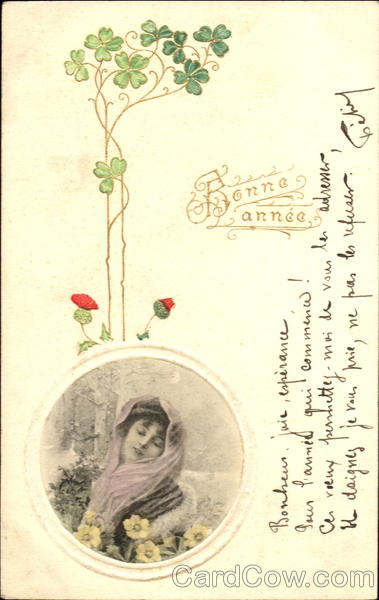 Bonne
année
Bonheur, joie, espérance,
Pour l'année qui commence!
Ces vœux permettez-moi de vous les adresser,
Et daignez je vous prie, ne pas les refuser.
CardCow.com